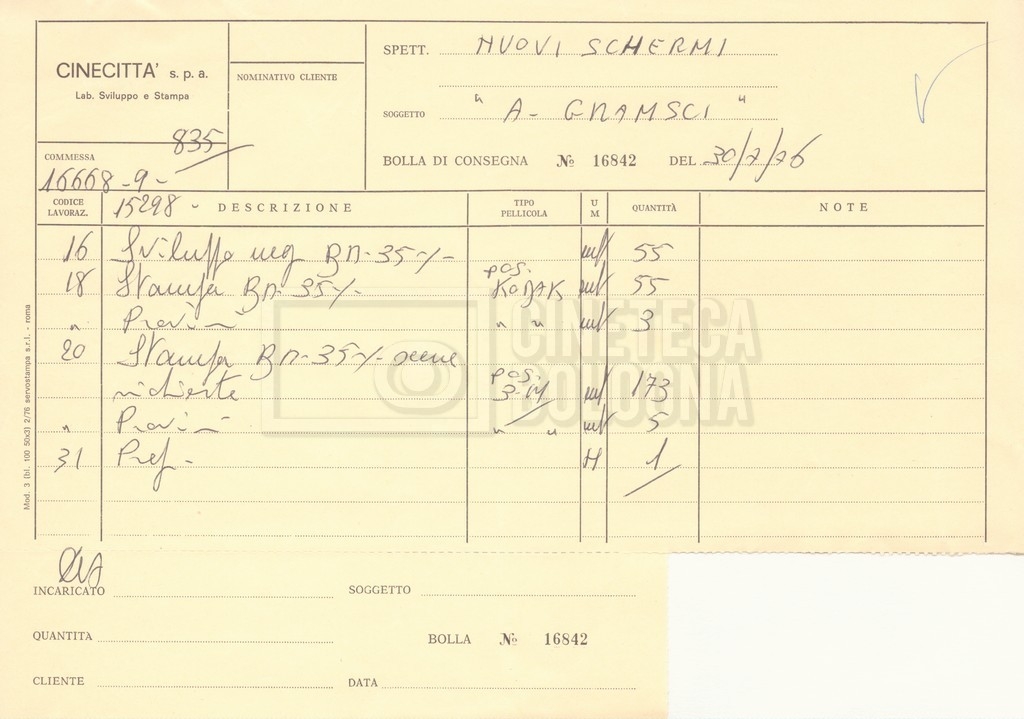 CINECITTA' s. p. a.
Lab. Sviluppo e Stampa
835
COMMESSA
16668-9-
15298 -
NOMINATIVO CLIENTE
SPETT. NUOVI SCHERMI
SOGGETTO "A- GRAMSCI"
BOLLA DI CONSEGNA No 16842 DEL 30/7/76
CODICE LAVORAZ. DESCRIZIONE TIPO PELLICOLA U M QUANTITÀ NOTE
16 Sviluppo neg BN-35-/- mt 55
18 Stampa BN 35-/- pos. KODAK mt 55
" Provini " " mt 3
20 Stampa BN-35-/- scene
richieste pos. 3-M mt 173
" Provini " " mt 5
31 Pref- H 1
Mod. 3 (bl. 100 50x3) 2/76 servostampa s.r.l. - roma
CINETECA
BOLOGNA
INCARICATO SOGGETTO
QUANTITA BOLLA No 16842
CLIENTE DATA